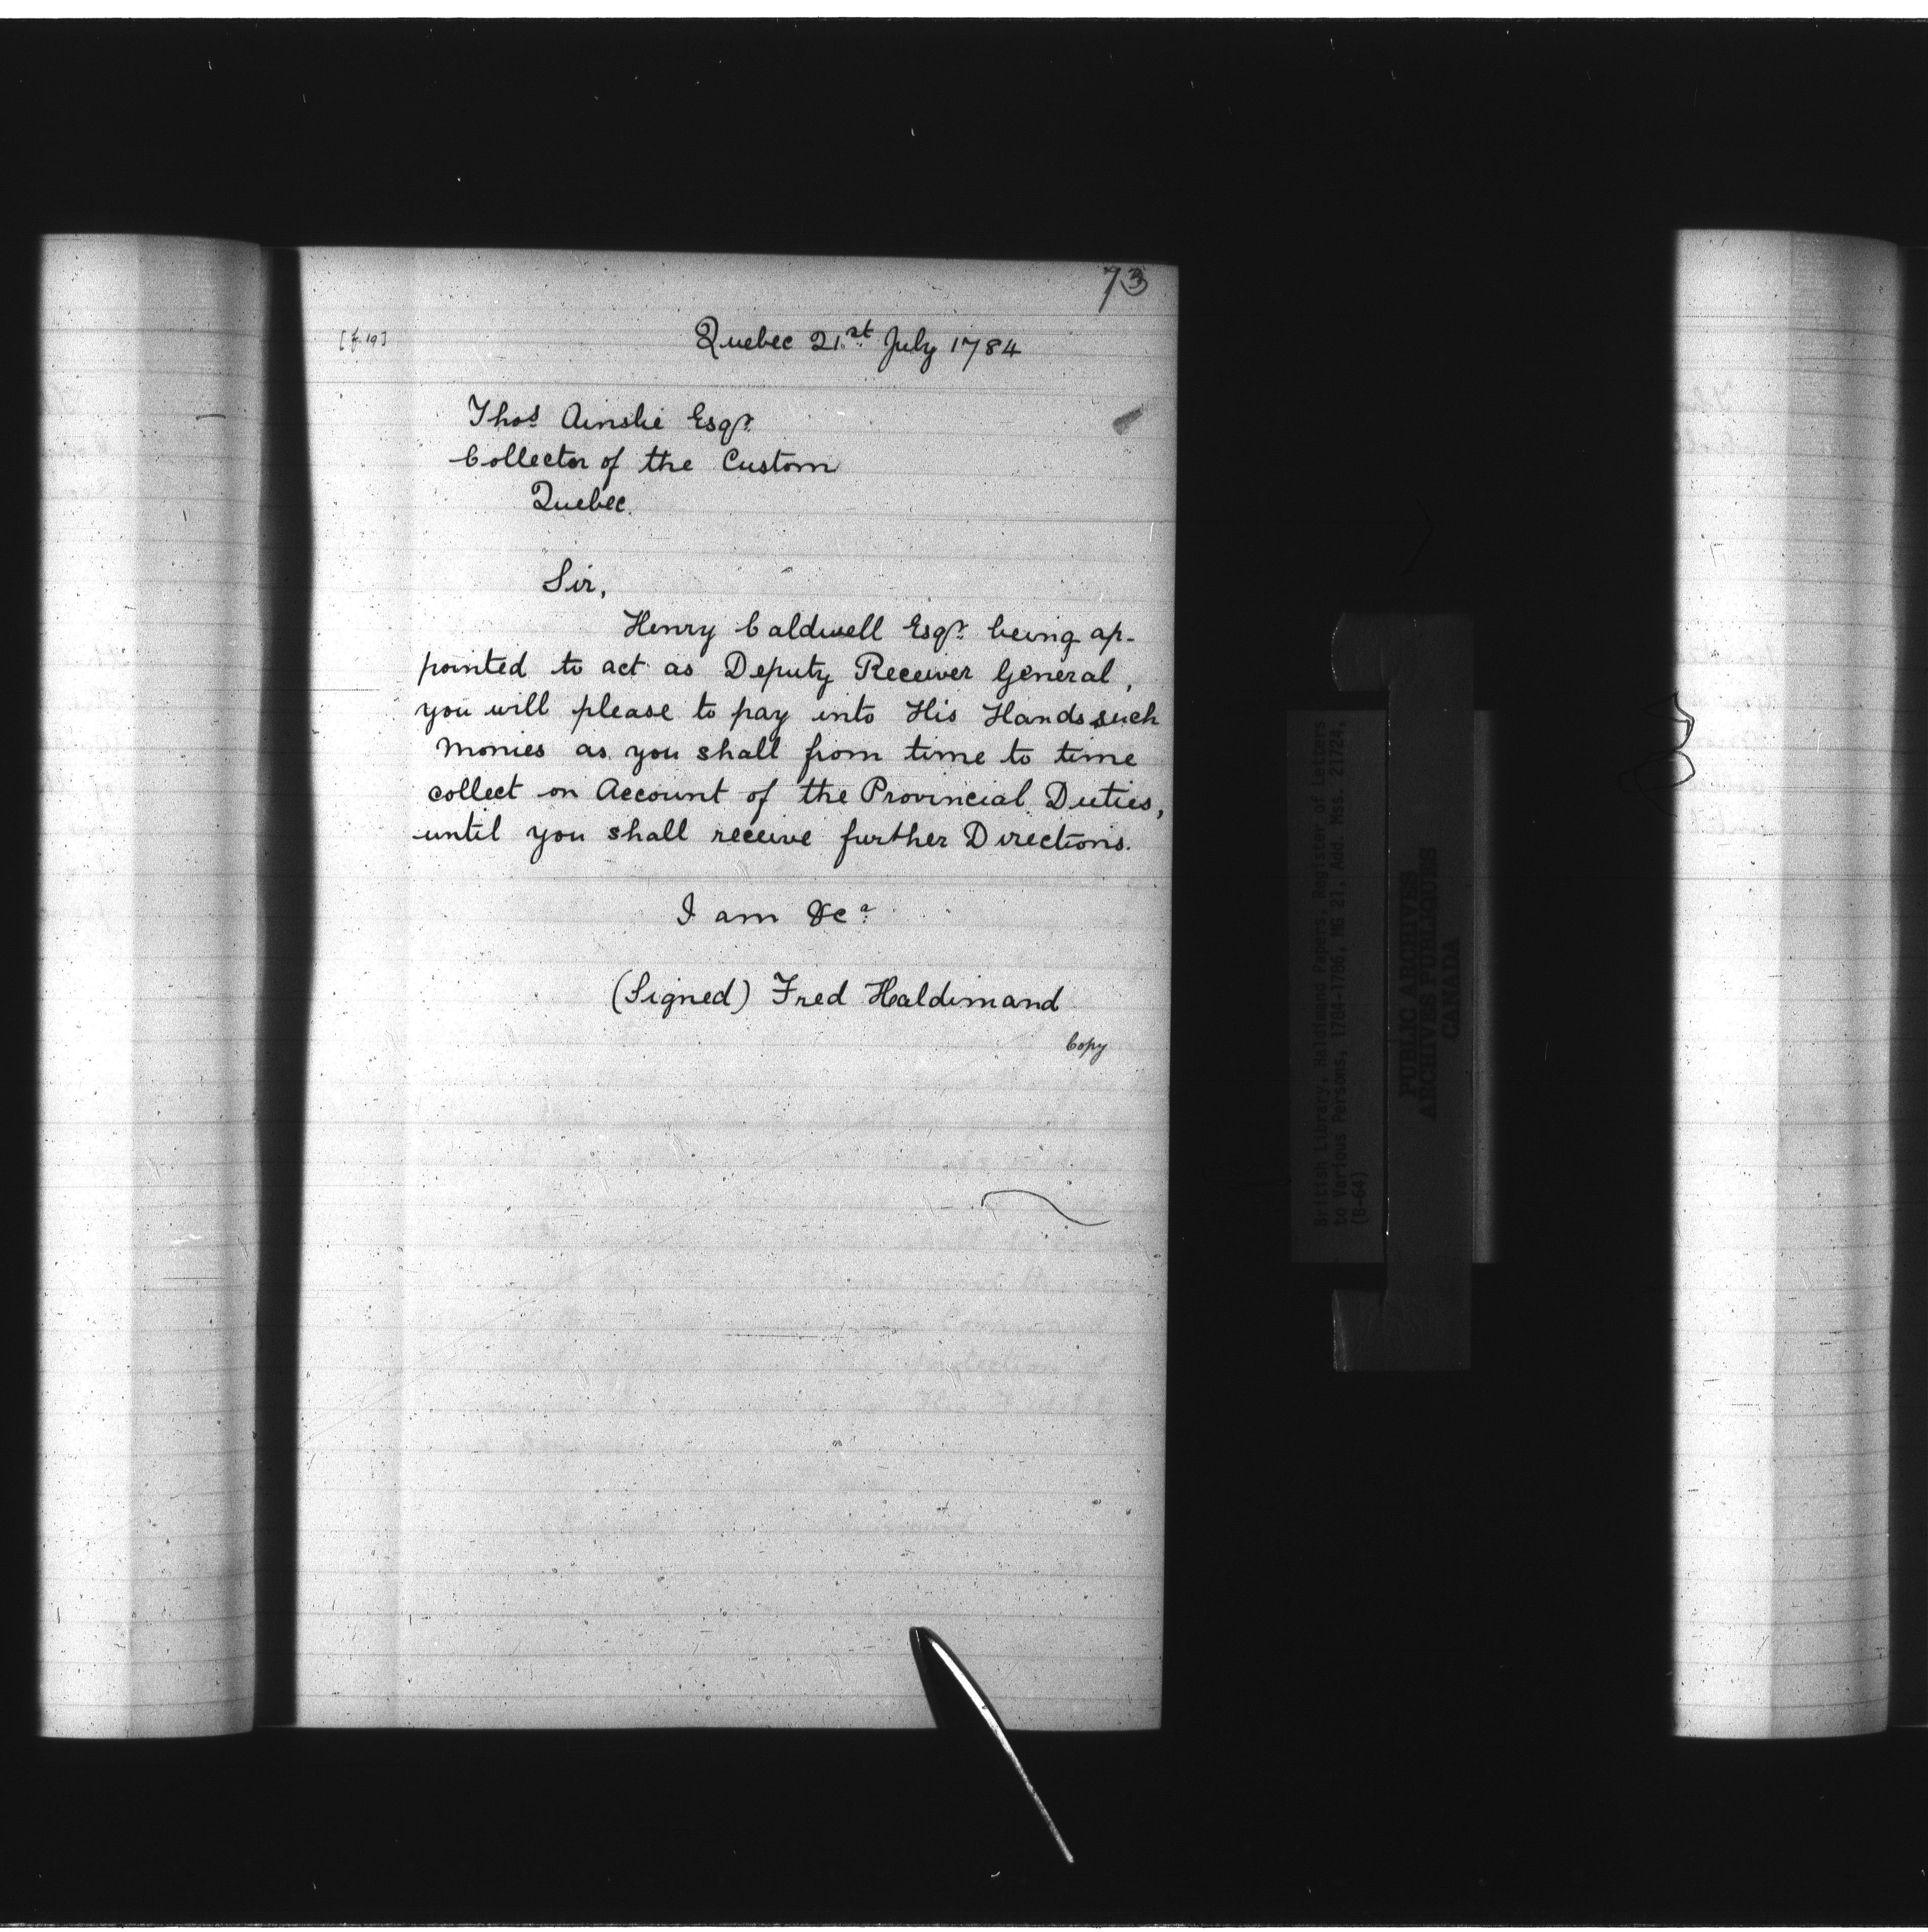 73
[f. 19]
Quebec 21.st July 1784
Thos Ainslie Esqr.
Collector of the Custom
Quebec.
Sir,
Henry Caldwell Esqr. being ap-
pointed to act as Deputy Receiver General,
you will please to pay into His Hands such
Monies as you shall from time to time
collect on Account of the Provincial Duties,
until you shall receive further Directions.
I am &ca.
(Signed) Fred Haldimand
Copy
British Library, Haldimand Papers, Register of Letters
to Various Persons, 1784-1786, MG 21, Add. Mss. 21724,
(B-64)
PUBLIC ARCHIVES
ARCHIVES PUBLIQUES
CANADA